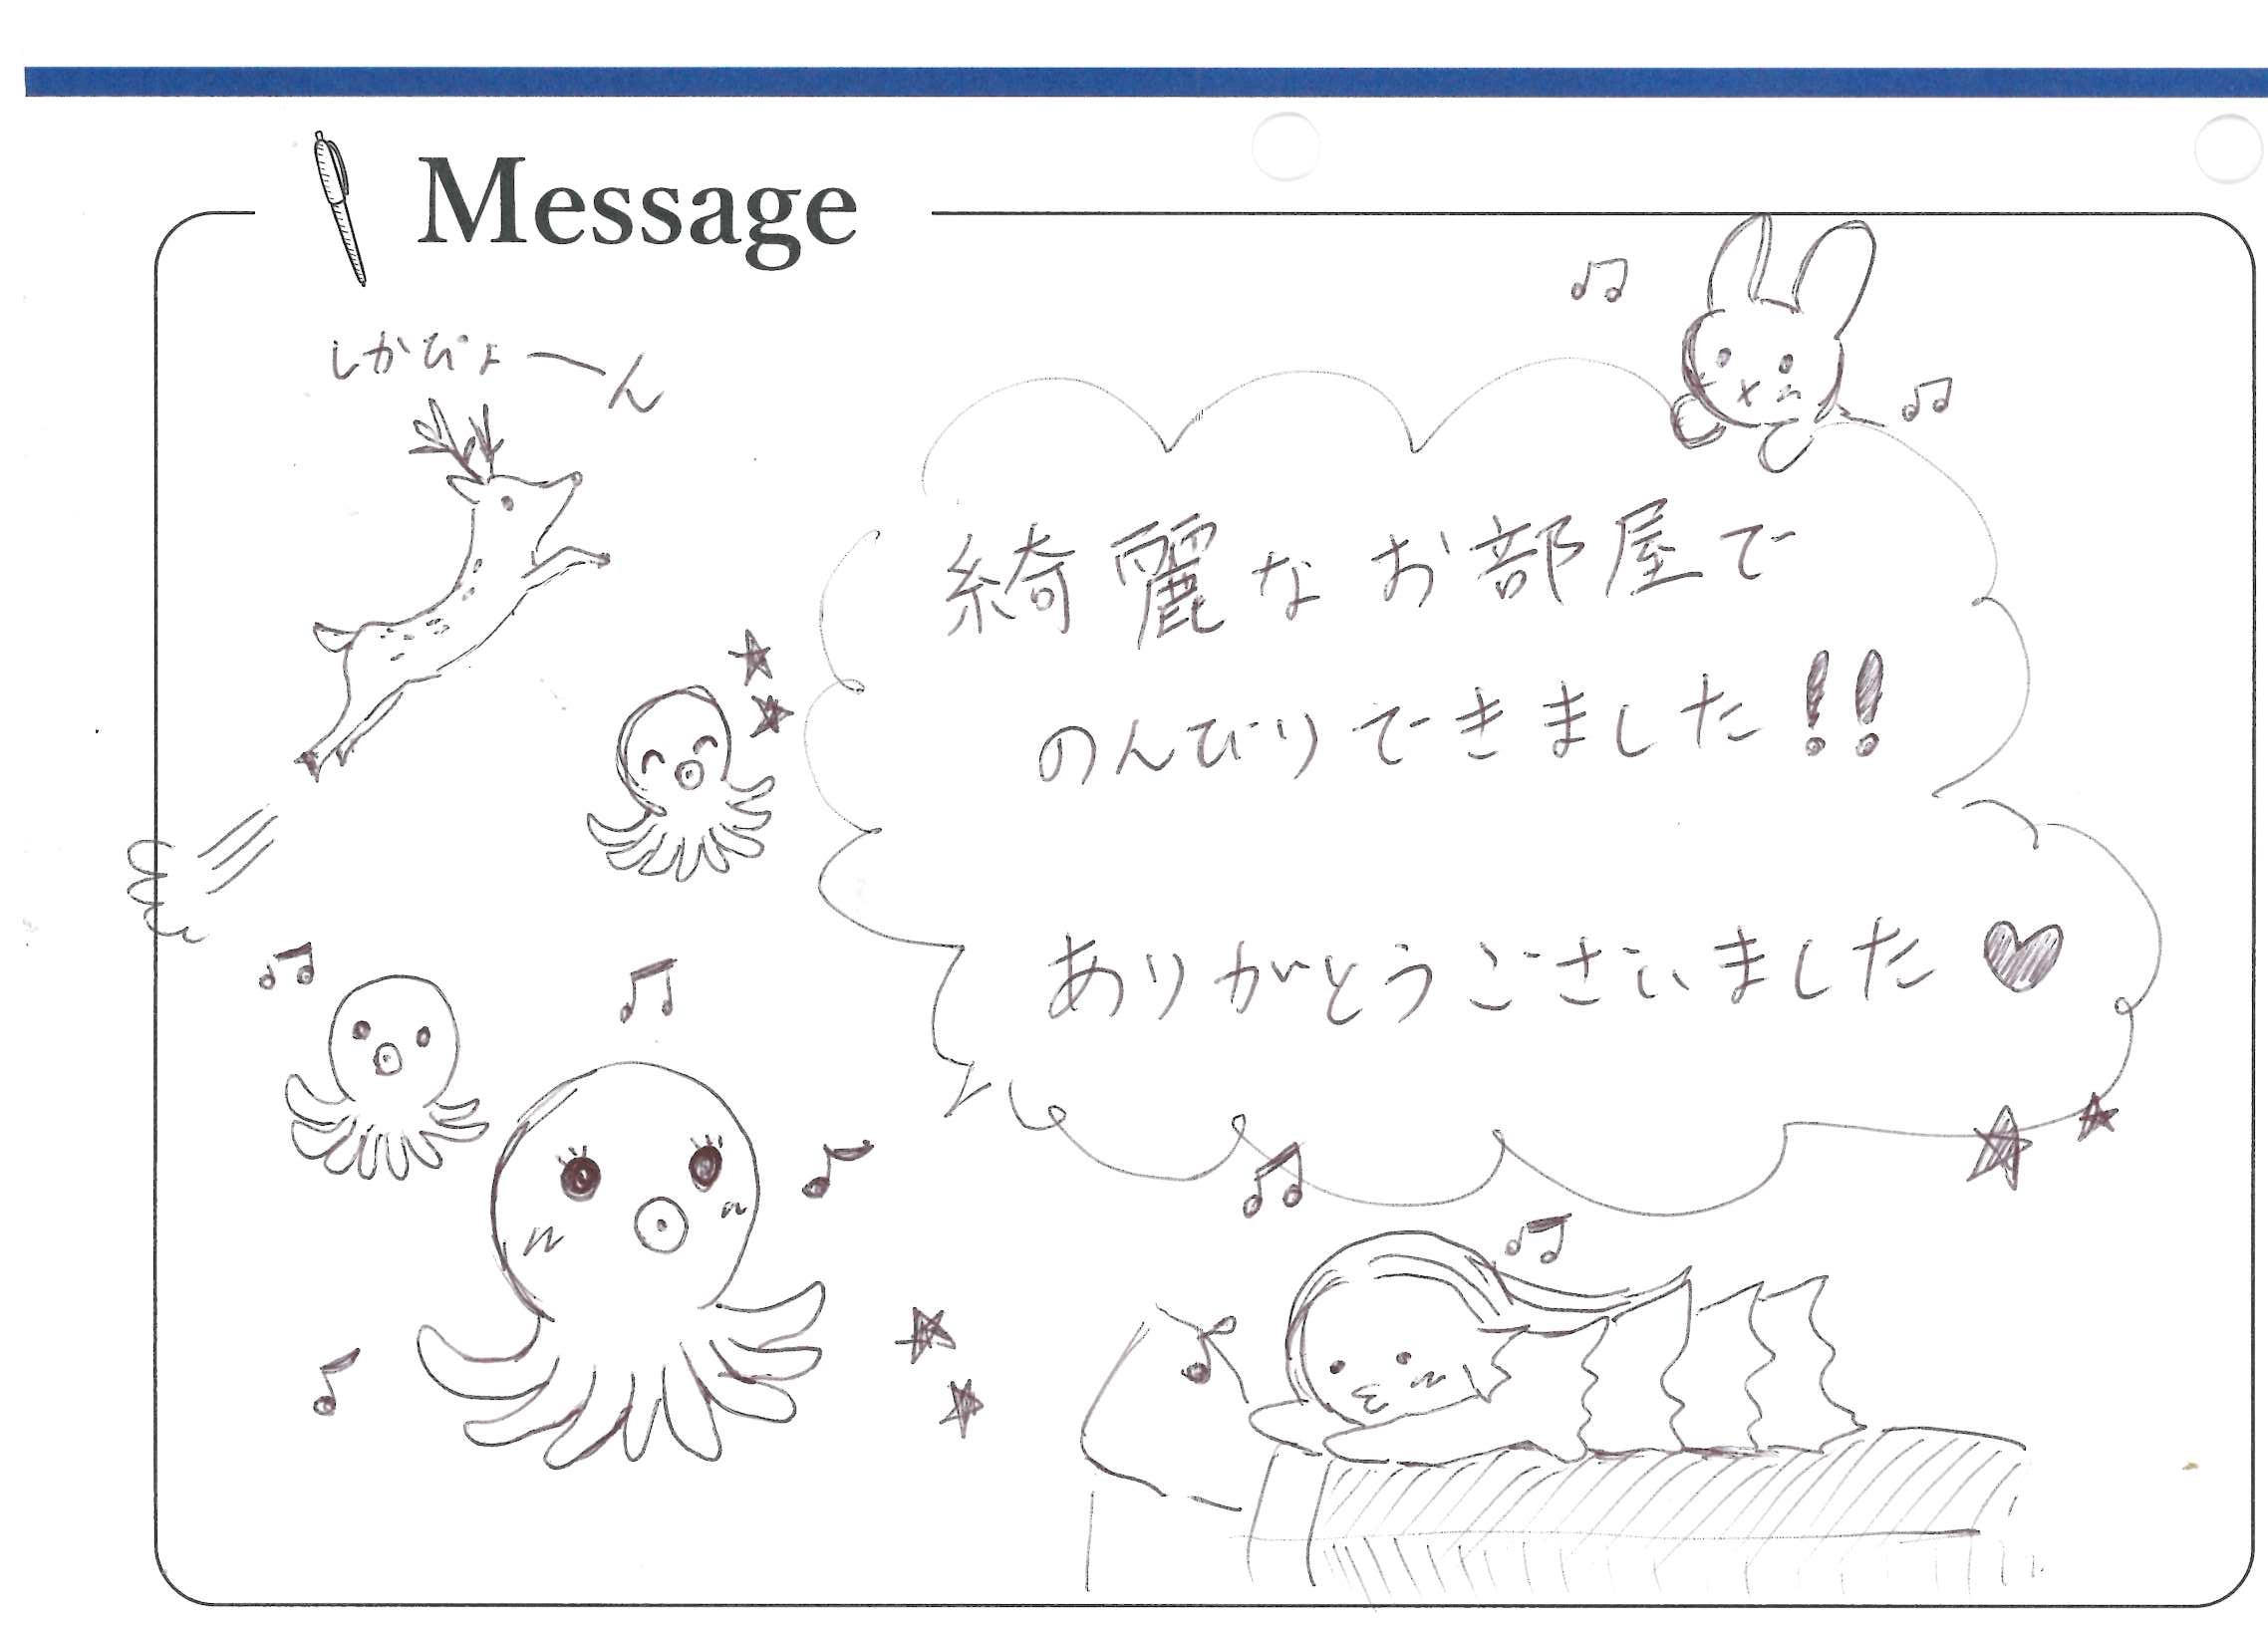 Message
しかぴょーん
綺麗なお部屋で
のんびりできました!!
ありがとうございました♥